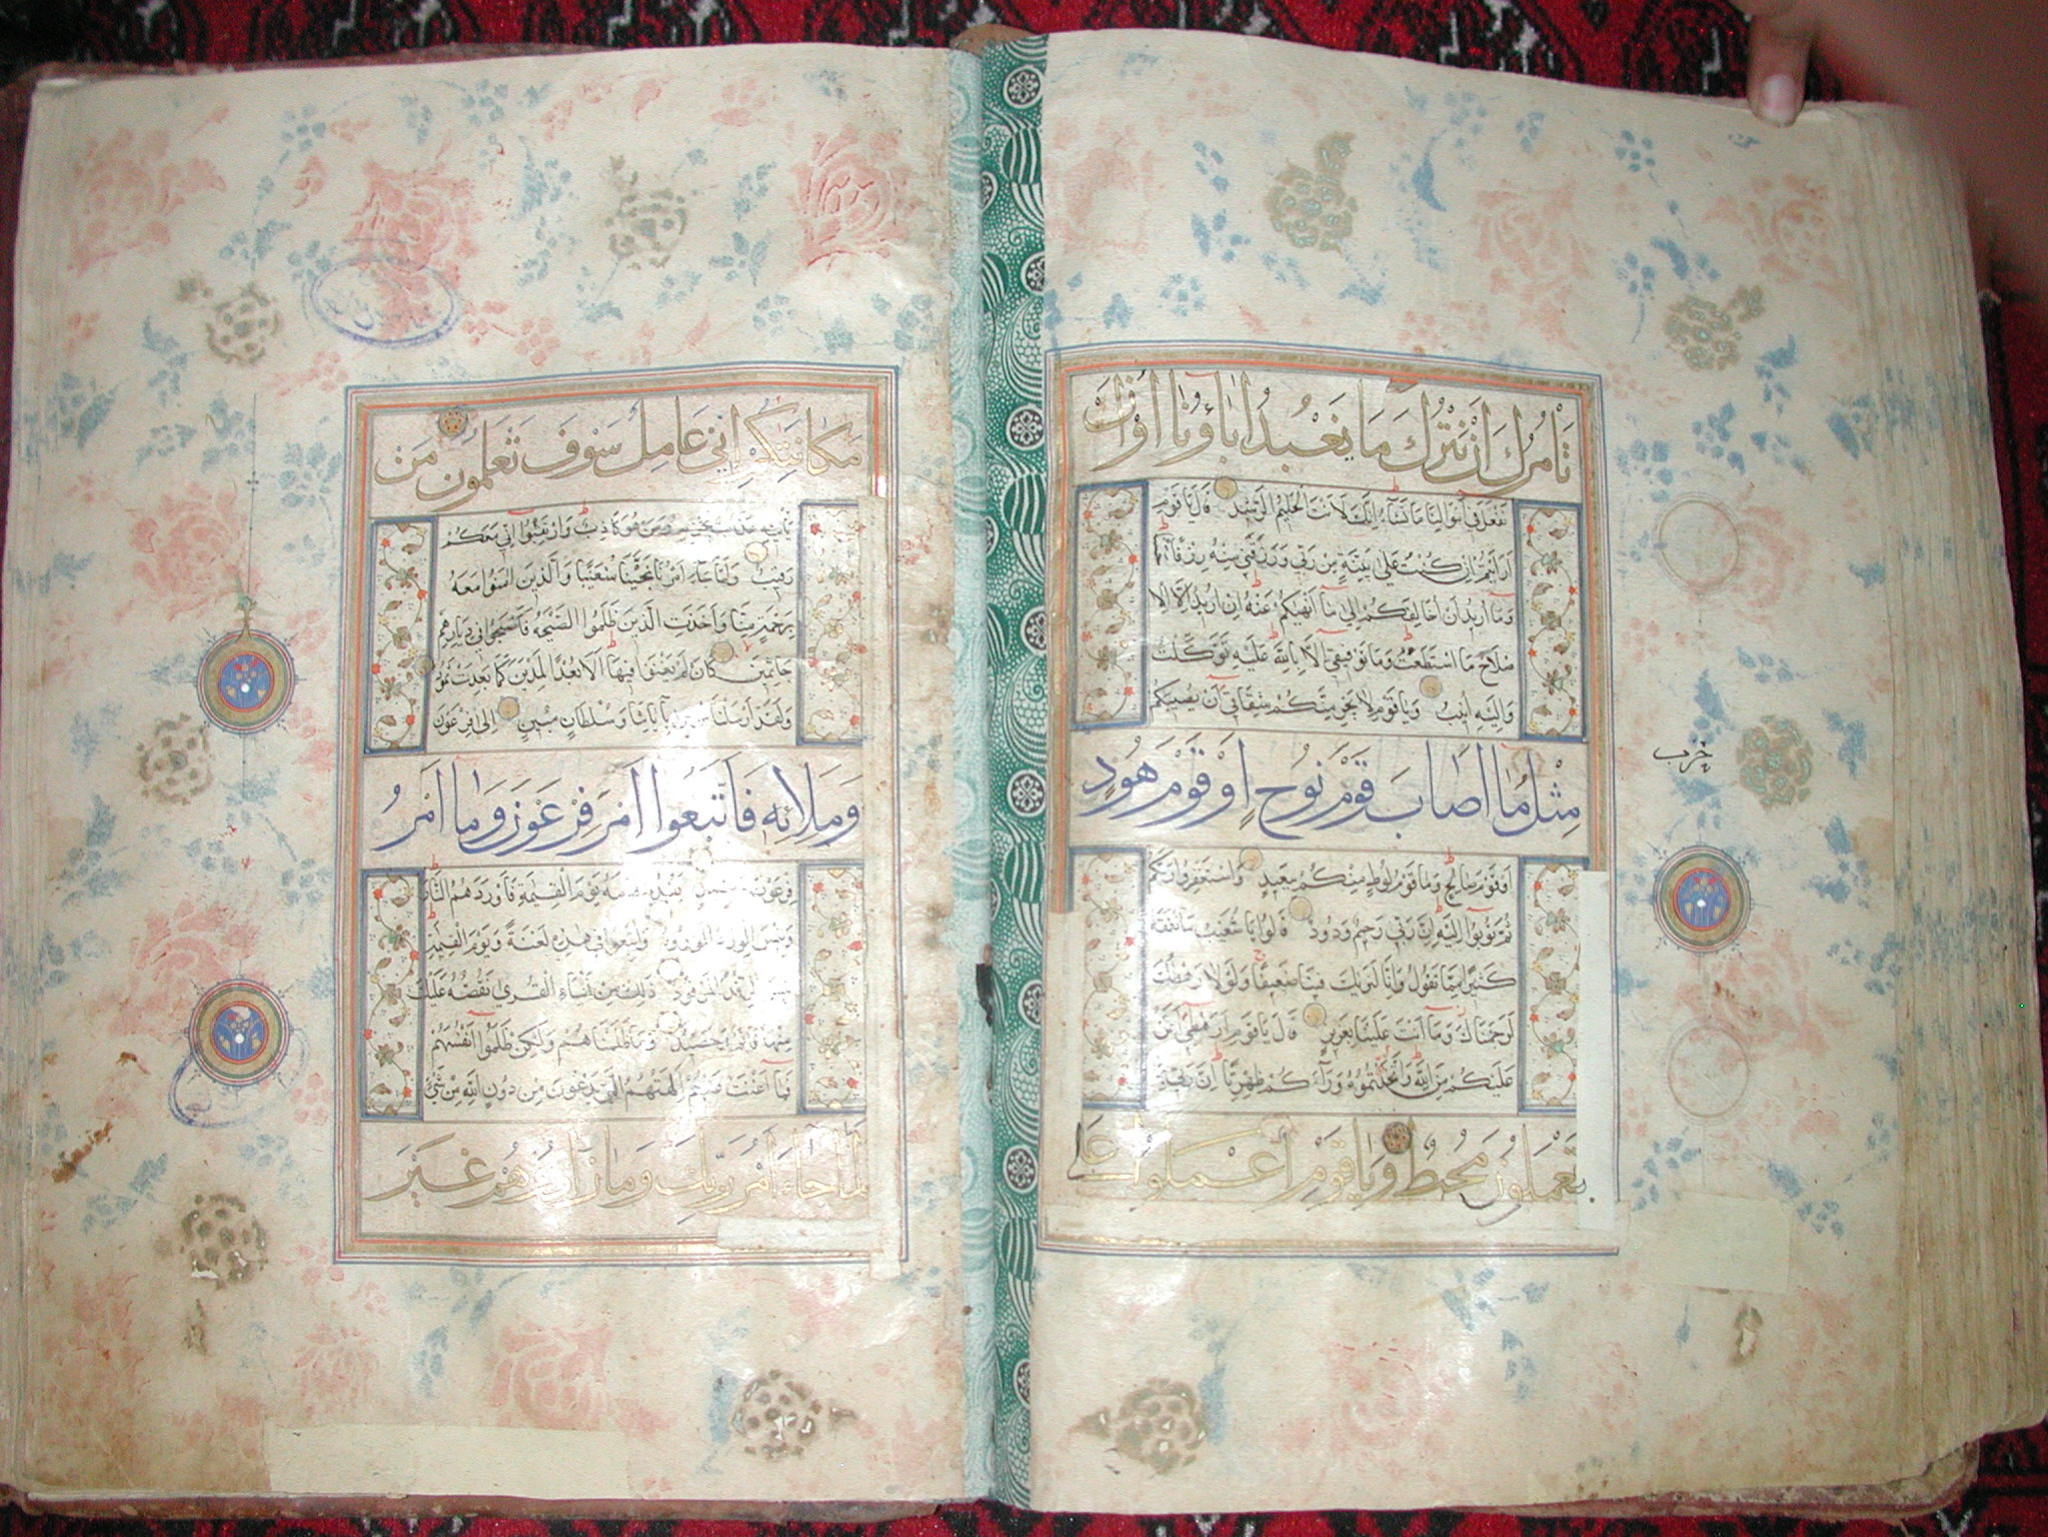 تأمرك ان نترك ما يعبد اباؤنا او ان
نفعل في اموالنا ما نشاء انك لانت الحليم الرشيد قال يا قوم
ارايتم ان كنت على بينة من ربي ورزقني منه رزقا
وما اريد ان اخالفكم الى ما انهيكم عنه ان اريد الا الا
صلاح ما استطعت وما توفيقي الا بالله عليه توكلت
واليه انيب ويا قوم لا يجرمنكم شقاقي ان يصيبكم
مثل ما اصاب قوم نوح او قوم هود
او قوم صالح وما قوم لوط منكم ببعيد واستغفروا ربكم
ثم توبوا اليه ان ربي رحيم ودود قالوا يا شعيب ما نفقه
كثيرا مما تقول وانا لنريك فينا ضعيفا ولولا رهطك
لرجمناك وما انت علينا بعزيز قال يا قوم ارهطي اعز
عليكم من الله واتخذتموه وراءكم ظهريا ان ربي بما
تعملون محيط ويا قوم اعملوا على
حزب
مكانتكم اني عامل سوف تعلمون من
يأتيه عذاب يخزيه ومن هو كاذب وارتقبوا اني معكم
رقيب ولما جاء امرنا نجينا شعيبا والذين امنوا معه
برحمة منا واخذت الذين ظلموا الصيحة فاصبحوا في ديارهم
جاثمين كان لم يغنوا فيها الا بعدا لمدين كما بعدت ثمود
ولقد ارسلنا موسى باياتنا وسلطان مبين الى فرعون
وملائه فاتبعوا امر فرعون وما امر
فرعون برشيد يقدم قومه يوم القيمة فاوردهم النار
وبئس الورد المورود واتبعوا في هذه لعنة ويوم القيمة
بئس الرفد المرفود ذلك من انباء القرى نقصه عليك
منها قائم وحصيد وما ظلمناهم ولكن ظلموا انفسهم
فما اغنت عنهم الهتهم التي يدعون من دون الله من شيء
لما جاء امر ربك وما زادوهم غير